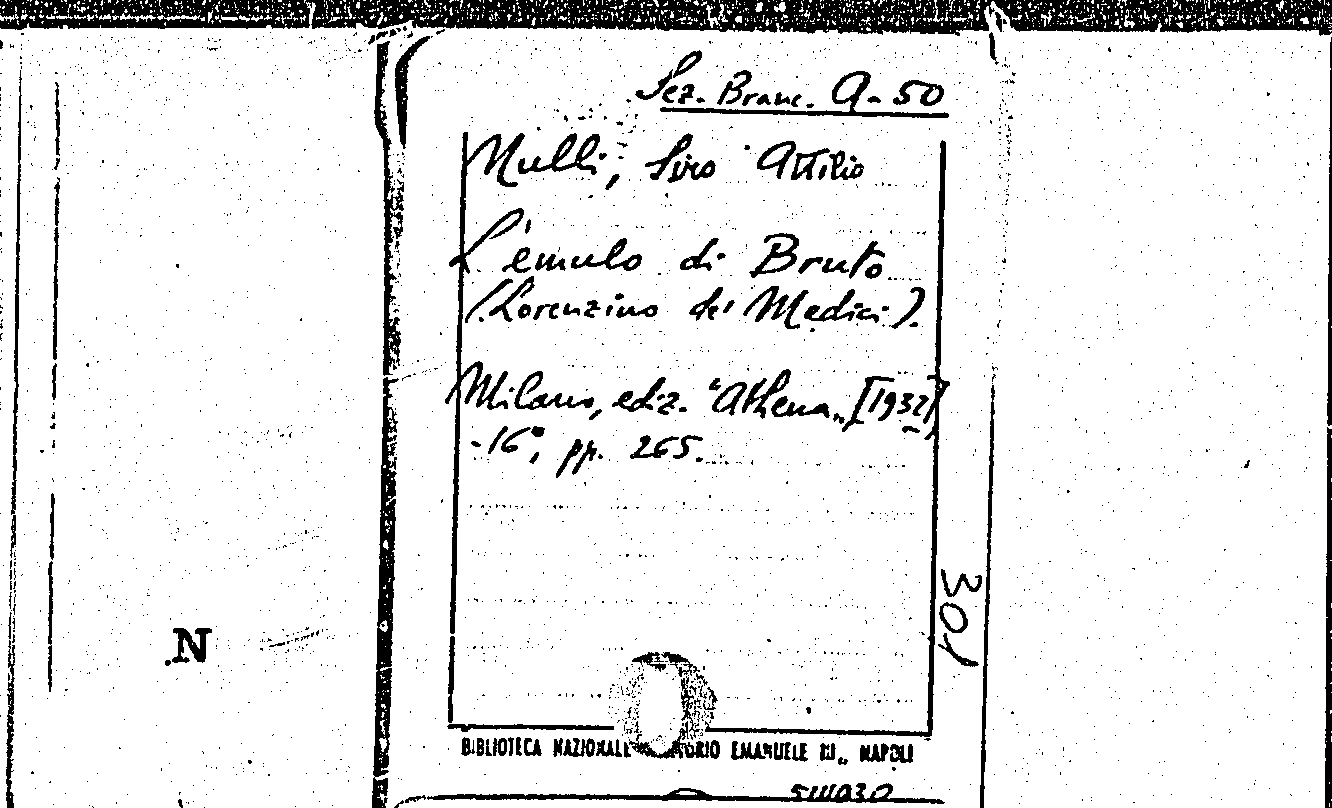 Sez. Branc. A-50
Nulli, Siro Attilio
L'emulo di Bruto
(Lorenzino de' Medici).
Milano, ediz. "Athena„ [1932]
-16°, pp. 265.
301
.N
BIBLIOTECA NAZIONALE EMANUELE III„ NAPOLI